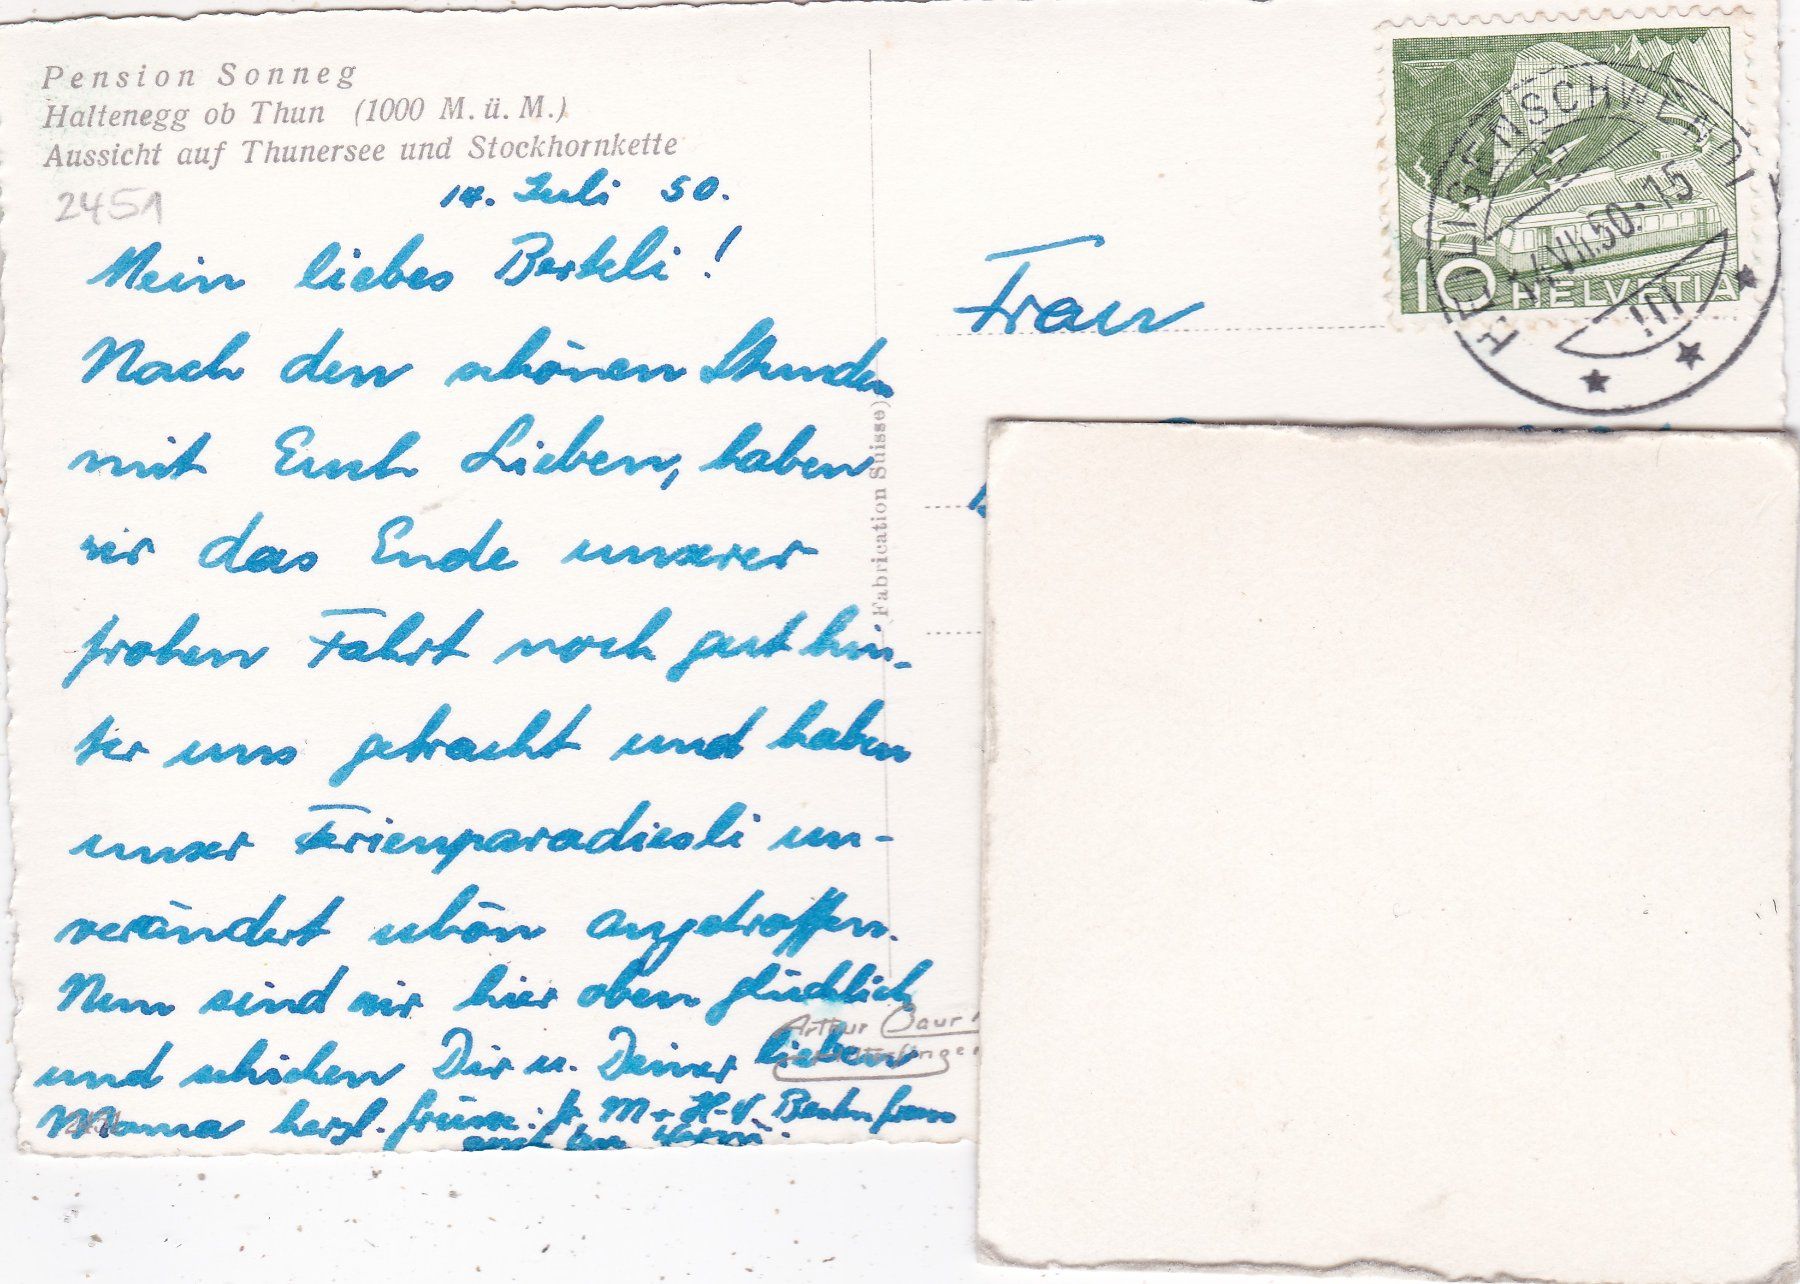 Pension Sonneg
Haltenegg ob Thun (1000 M. ü. M.)
Aussicht auf Thunersee und Stockhornkette
2451
14. Juli 50.
Mein liebes Berteli!
Nach den schönen Stunden
mit Euch Lieben, haben
wir das Ende unserer
frohen Fahrt noch gut hin-
ter uns gebracht und haben
unser Ferienparadiesli un-
verändert schön angetroffen.
Nun sind wir hier oben glücklich
und schicken Dir u. Deiner lieben
Mama herzl. Grüsse: Fr. M + H-V. Besten Gruss
auch an
(Fabrication Suisse)
Arthur Baur
Frau
HEILIGENSCHWENDI
14.VII.50.-15
10 HELVETIA